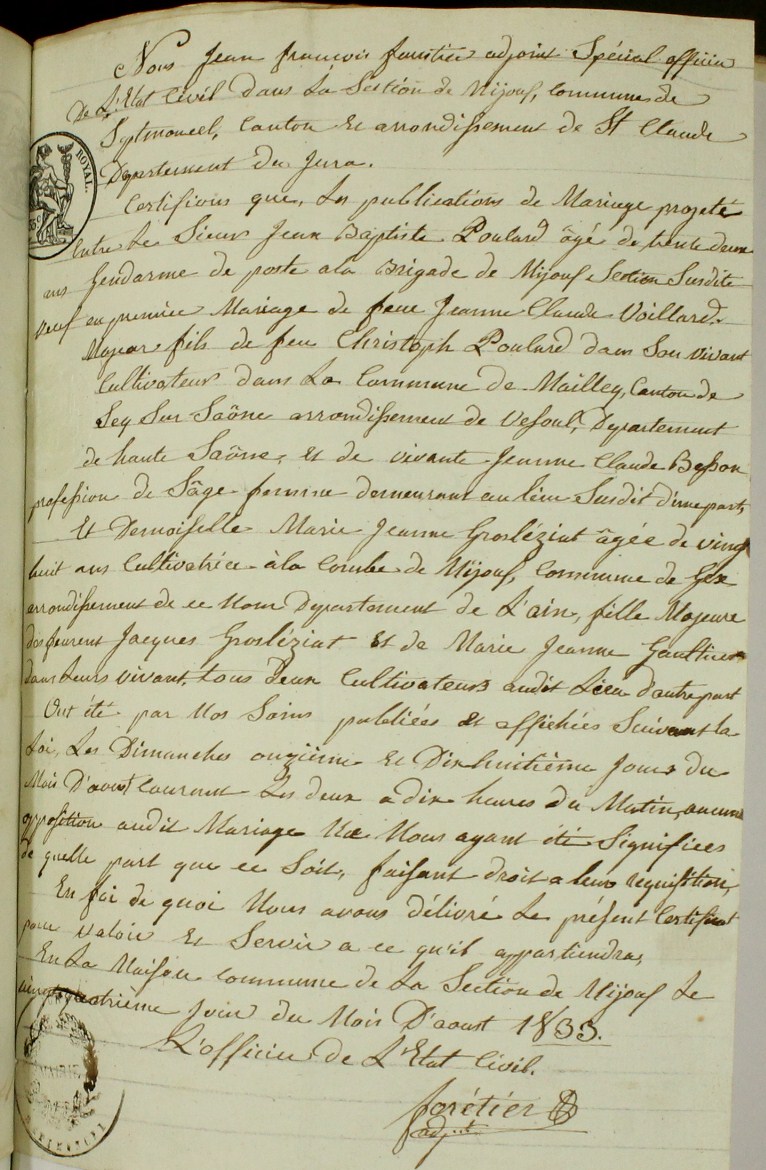 Nous Jean francois foretier adjoint Spécial officier
De L'Etat Civil dans La Section de Mijoux, Commune de
Septmoncel, Canton Et arrondissement de St Claude
Département du Jura.
ROYAL.
35c
Certifions que, Les publications de Mariage projeté
Entre Le Sieur Jean Baptiste Poulard âgé de trente deux
ans Gendarme de poste a la Brigade de Mijoux Section Susdite
Veuf en premier Mariage de feue Jeanne Claude Voillard.
Majeur fils de feu Christoph Poulard dans Son vivant
Cultivateur dans La Commune de Mailley, Canton de
Sey Sur Saône arrondissement de Vesoul, Département
de haute Saône, Et de vivante Jeanne Claude Besson
profession de Sâge femme demeurant au lieu Susdit d'une part,
Et Demoiselle Marie Jeanne Grosléziat âgée de vingt
huit ans Cultivatrice à la Combe de Mijoux, Commune de Gex
arrondissement de ce Nom Département de L'ain, fille Majeure
des feurent Jacques Grosléziat Et de Marie Jeanne Gaultier
dans Leurs vivant, tous Deux Cultivateurs audit Lieu d'autre part
Ont été par Nos Soins publiées et affichées Suivant la
Loi, Les Dimanches onzième Et Dix huitième Jours du
Mois D'aoust Courant Les deux a dix heures du Matin, aucune
opposition audit Mariage Ne Nous ayant été Signifiées
de quelle part que ce Soit, faisant droit a leur requisition,
En foi de quoi Nous avons délivré Le présent Certificat
pour valoir Et Servir a ce qu'il appartiendra,
En La Maison commune de La Section de Mijoux Le
vingt quatrième Jour du Mois D'aoust 1833.
L'officier de L'Etat Civil.
forétier
adjt
MAIRIE